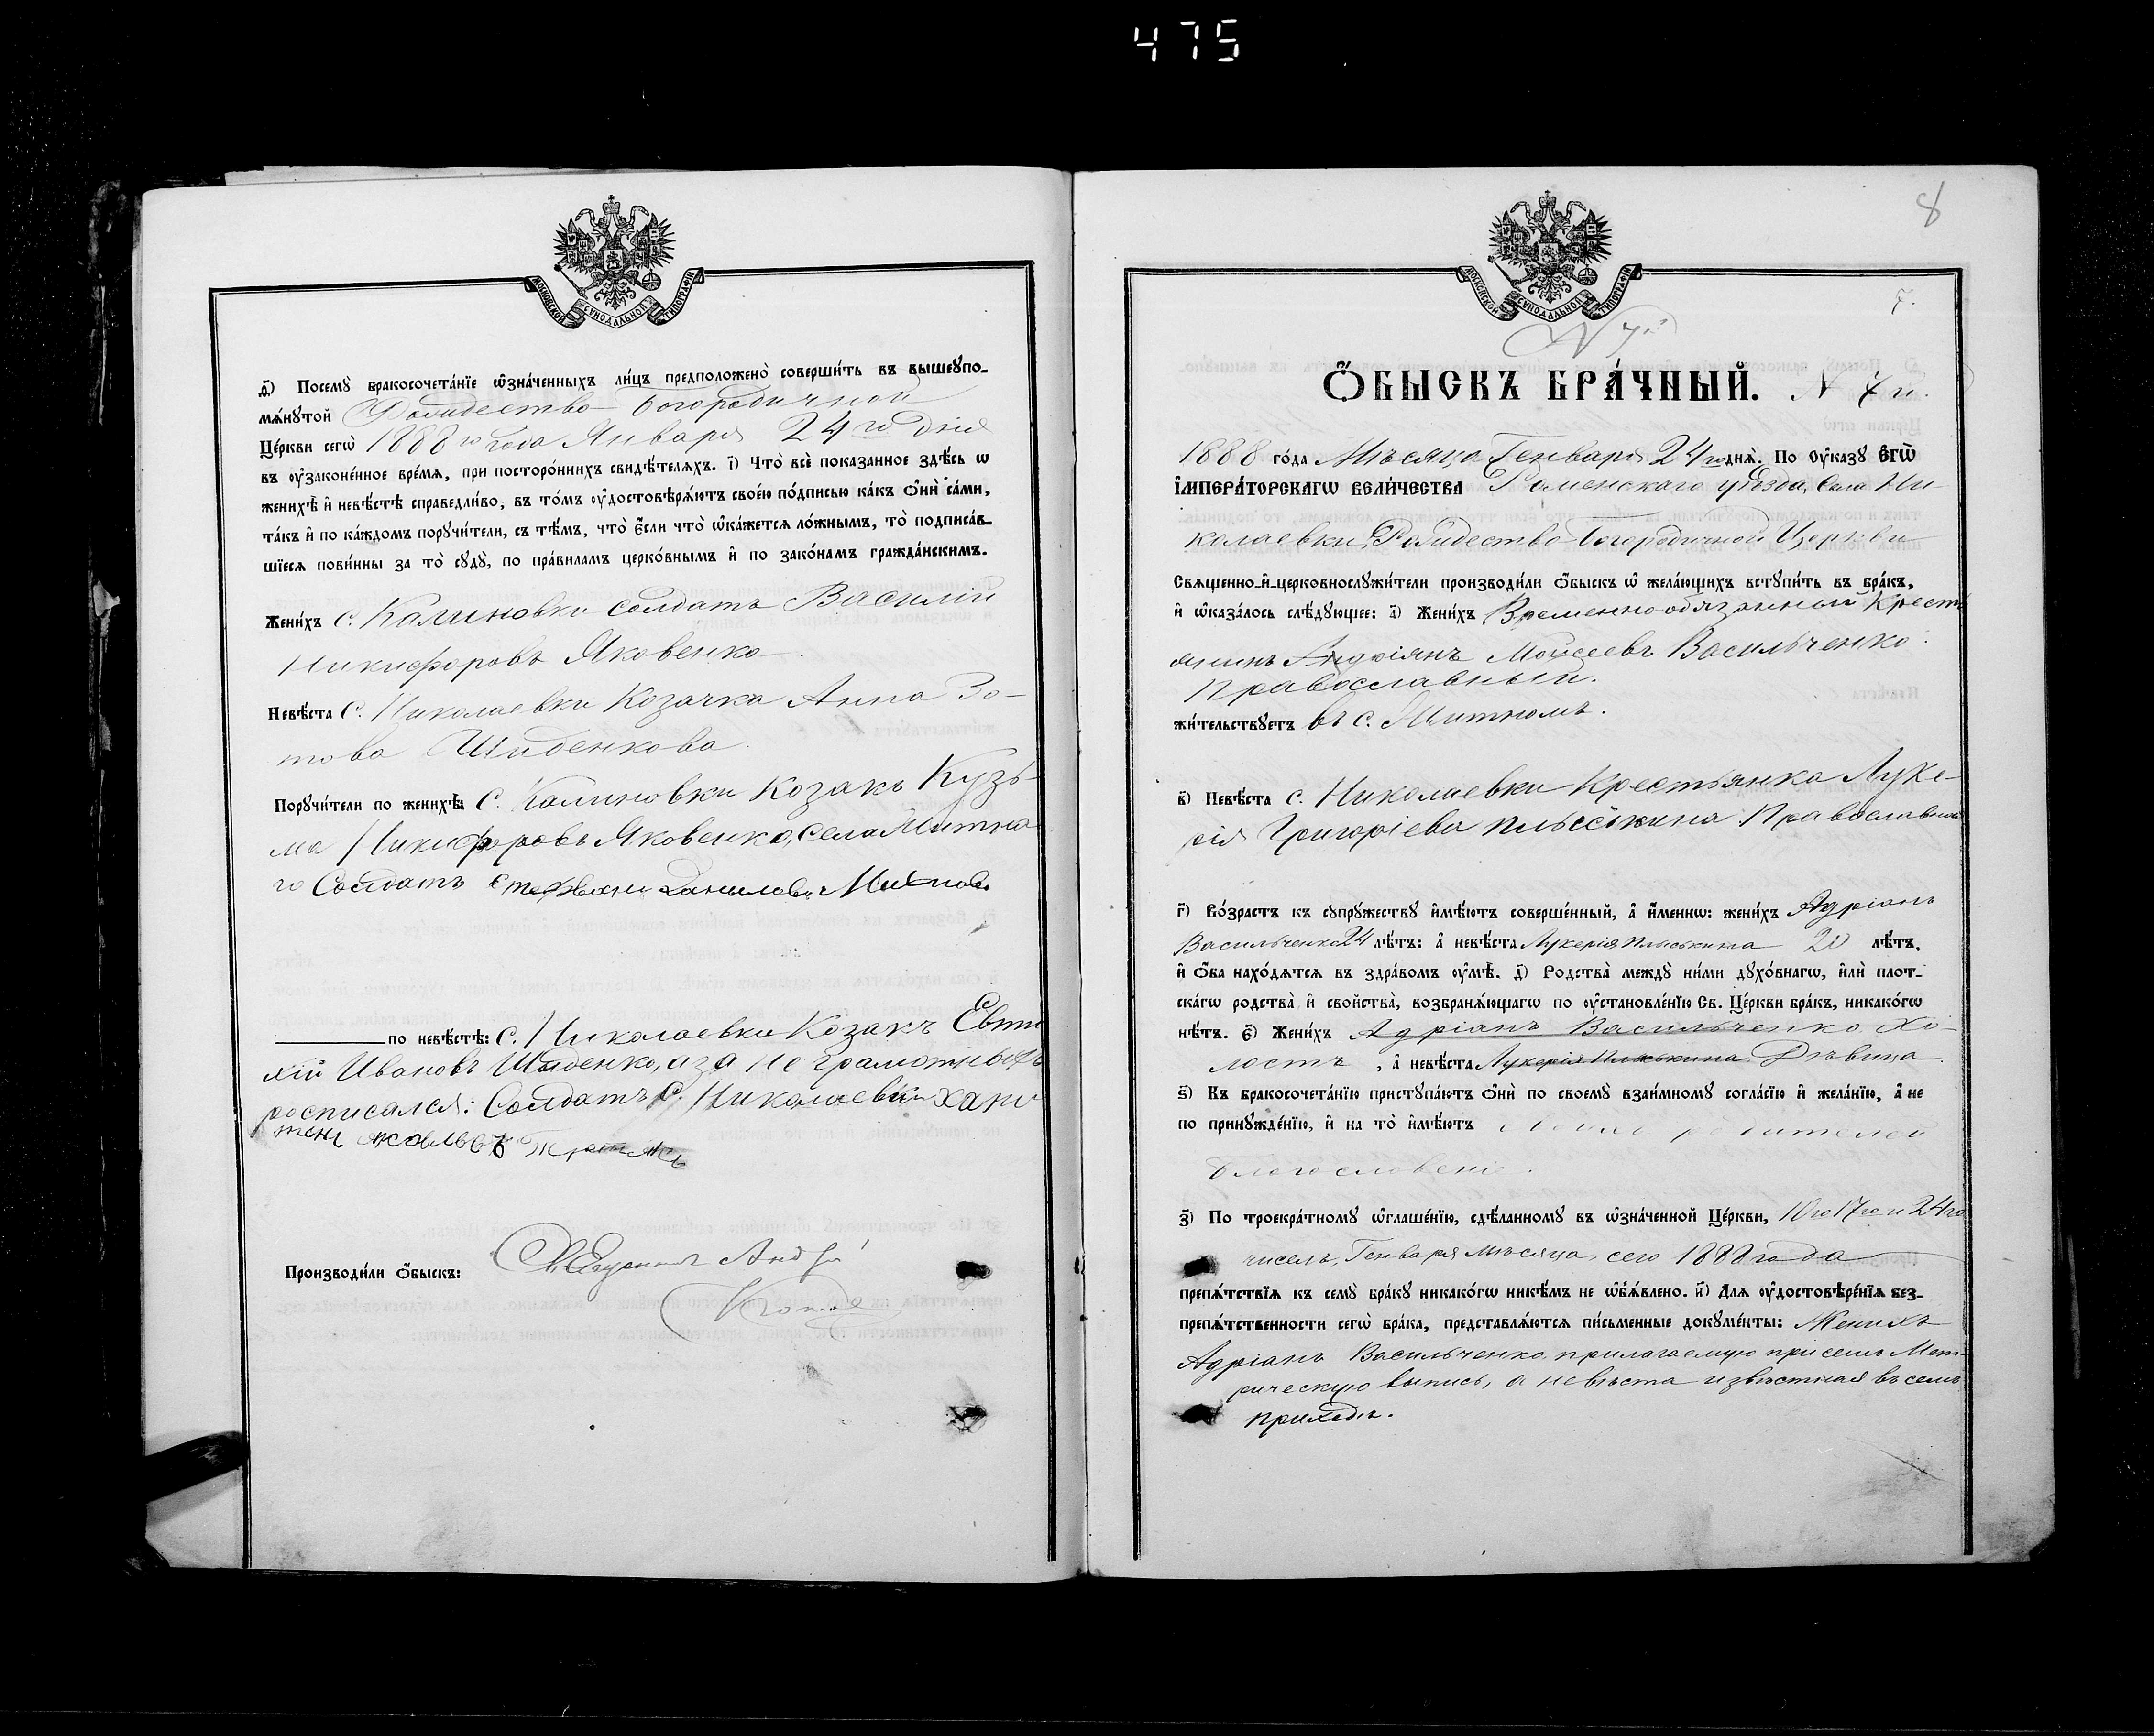 475
МОСКОВСКОЙ СѴНОДАЛЬНОЙ ТИПОГРАФІИ
д҃) Посемꙋ̀ бракосочета́нїе ѡ҆зна́ченныхъ ли́цъ предположено̀ соверши́ть въ вышеꙋпо-
мѧ́нꙋтой Рождество-Богородичной
Це́ркви сегѡ̀ 1888 го года Января 24 го дня
въ оу҆зако́не́нное вре́мѧ, при посторо́ннихъ свидѣ́телѧхъ. і҃) Что̀ всѐ показанное здѣ́сь ѡ
женихѣ̀ и҆ невѣ́стѣ справедли́во, въ то́мъ оу҆достовѣрѧ́ютъ свое́ю по́дписью ка́къ ѻ҆нѝ са́ми,
та́къ и҆ по ка́ждомъ порꙋчи́тели, съ тѣ́мъ, что̀ є҆́сли что̀ ѡ҆ка́жетсѧ ло́жнымъ, то̀ подписа́в-
шїесѧ пови́нны за то̀ сꙋдꙋ̀, по пра́виламъ церко́внымъ и҆ по зако́намъ гражда́нскимъ.
Жени́хъ с. Калиновки Солдатъ Василій
Никифоровъ Яковенко
Невѣ́ста с. Николаевки Козачка Анна Зо-
това Шиденкова
Порꙋчи́тели по женихѣ̀ с. Калиновки Козакъ Кузь-
ма Никифоровъ Яковенко, Села Житна
го Солдатъ Данилов
по невѣ́стѣ: с. Николаевки Козакъ Евти
хій Ивановъ Шиденко, а за не грамотныхъ
росписался: Солдатъ С. Николаевки
Производи́ли ѻ҆́быскъ: Андрей
8
МОСКОВСКОЙ СѴНОДАЛЬНОЙ ТИПОГРАФІИ
7.
N 7й
Ѻ҆́БЫСКЪ БРА́ЧНЫЙ. N 7й.
1888 го́да Мѣсяца Генваря 24 го днѧ̀. По оу҆ка́зꙋ Є҆ГѠ̀
І҆МПЕРА́ТОРСКАГѠ ВЕЛИ́ЧЕСТВА Роменскаго уѣзда, Села Ни-
колаевки, Рождество-Богородичной Церкви
Свѧщенно-и҆-церковнослꙋжи́тели производи́ли ѻ҆́быскъ ѡ҆ жела́ющихъ встꙋпи́ть въ бра́къ,
и҆ ѡ҆каза́лось слѣ́дꙋющее: а҃) Жени́хъ Временнообязанный Крестъ
янинъ Андріянъ Мойсеевъ Васильченко.
Православный.
жи́тельствꙋетъ въ с. Житномъ.
в҃) Невѣ́ста с. Николаевки Крестьянка Луке-
рія Григоріева Плыськина. Православная
г҃) Во́зрастъ къ сꙋпрꙋ́жествꙋ и҆мѣ́ютъ соверше́нный, а҆ и҆́меннѡ: жени́хъ Адріанъ
Васильченко 24 лѣ́тъ: а҆ невѣ́ста Лукерія Плыськина 20 лѣ́тъ.
и҆ ѻ҆́ба нахо́дѧтсѧ въ здра́вомъ оу҆мѣ̀. д҃) Родства̀ междꙋ̀ ни́ми дꙋхо́внагѡ, и҆лѝ плот-
ска́гѡ родства̀ и҆ сво́йства, возбранѧ́ющагѡ по оу҆становле́нїю Св. Це́ркви бра́къ, никако́гѡ
нѣ́тъ. є҃) Жени́хъ Адріанъ Васильченко Хо-
лостъ, а҆ невѣ́ста Лукерія Плыськина Дѣвица.
ѕ҃) Къ бракосочета́нїю пристꙋпа́ютъ ѻ҆нѝ по своемꙋ̀ взаи́мномꙋ согла́сїю и҆ жела́нїю, а҆ не
по принꙋжде́нїю, и҆ на то̀ и҆мѣ́ютъ родителей
благословеніе.
з҃) По троекра́тномꙋ ѡ҆глаше́нїю, сдѣ́ланномꙋ въ ѡ҆зна́ченной Це́ркви, 10 го 17 го и 24 го
чиселъ, Генваря мѣсяца, сего 1888 года
препѧ́тствїѧ къ семꙋ̀ бра́кꙋ никако́гѡ никѣ́мъ не ѡ҆б̾ѧ́влено. и҃) Длѧ оу҆достовѣре́нїѧ без-
препѧ́тственности сегѡ̀ бра́ка, представлѧ́ютсѧ пи́сьменные докꙋме́нты: Женихъ
Адріанъ Васильченко прилагаемую при семъ Мет-
рическую выпись, а невѣста извѣстная въ семъ
приходѣ.